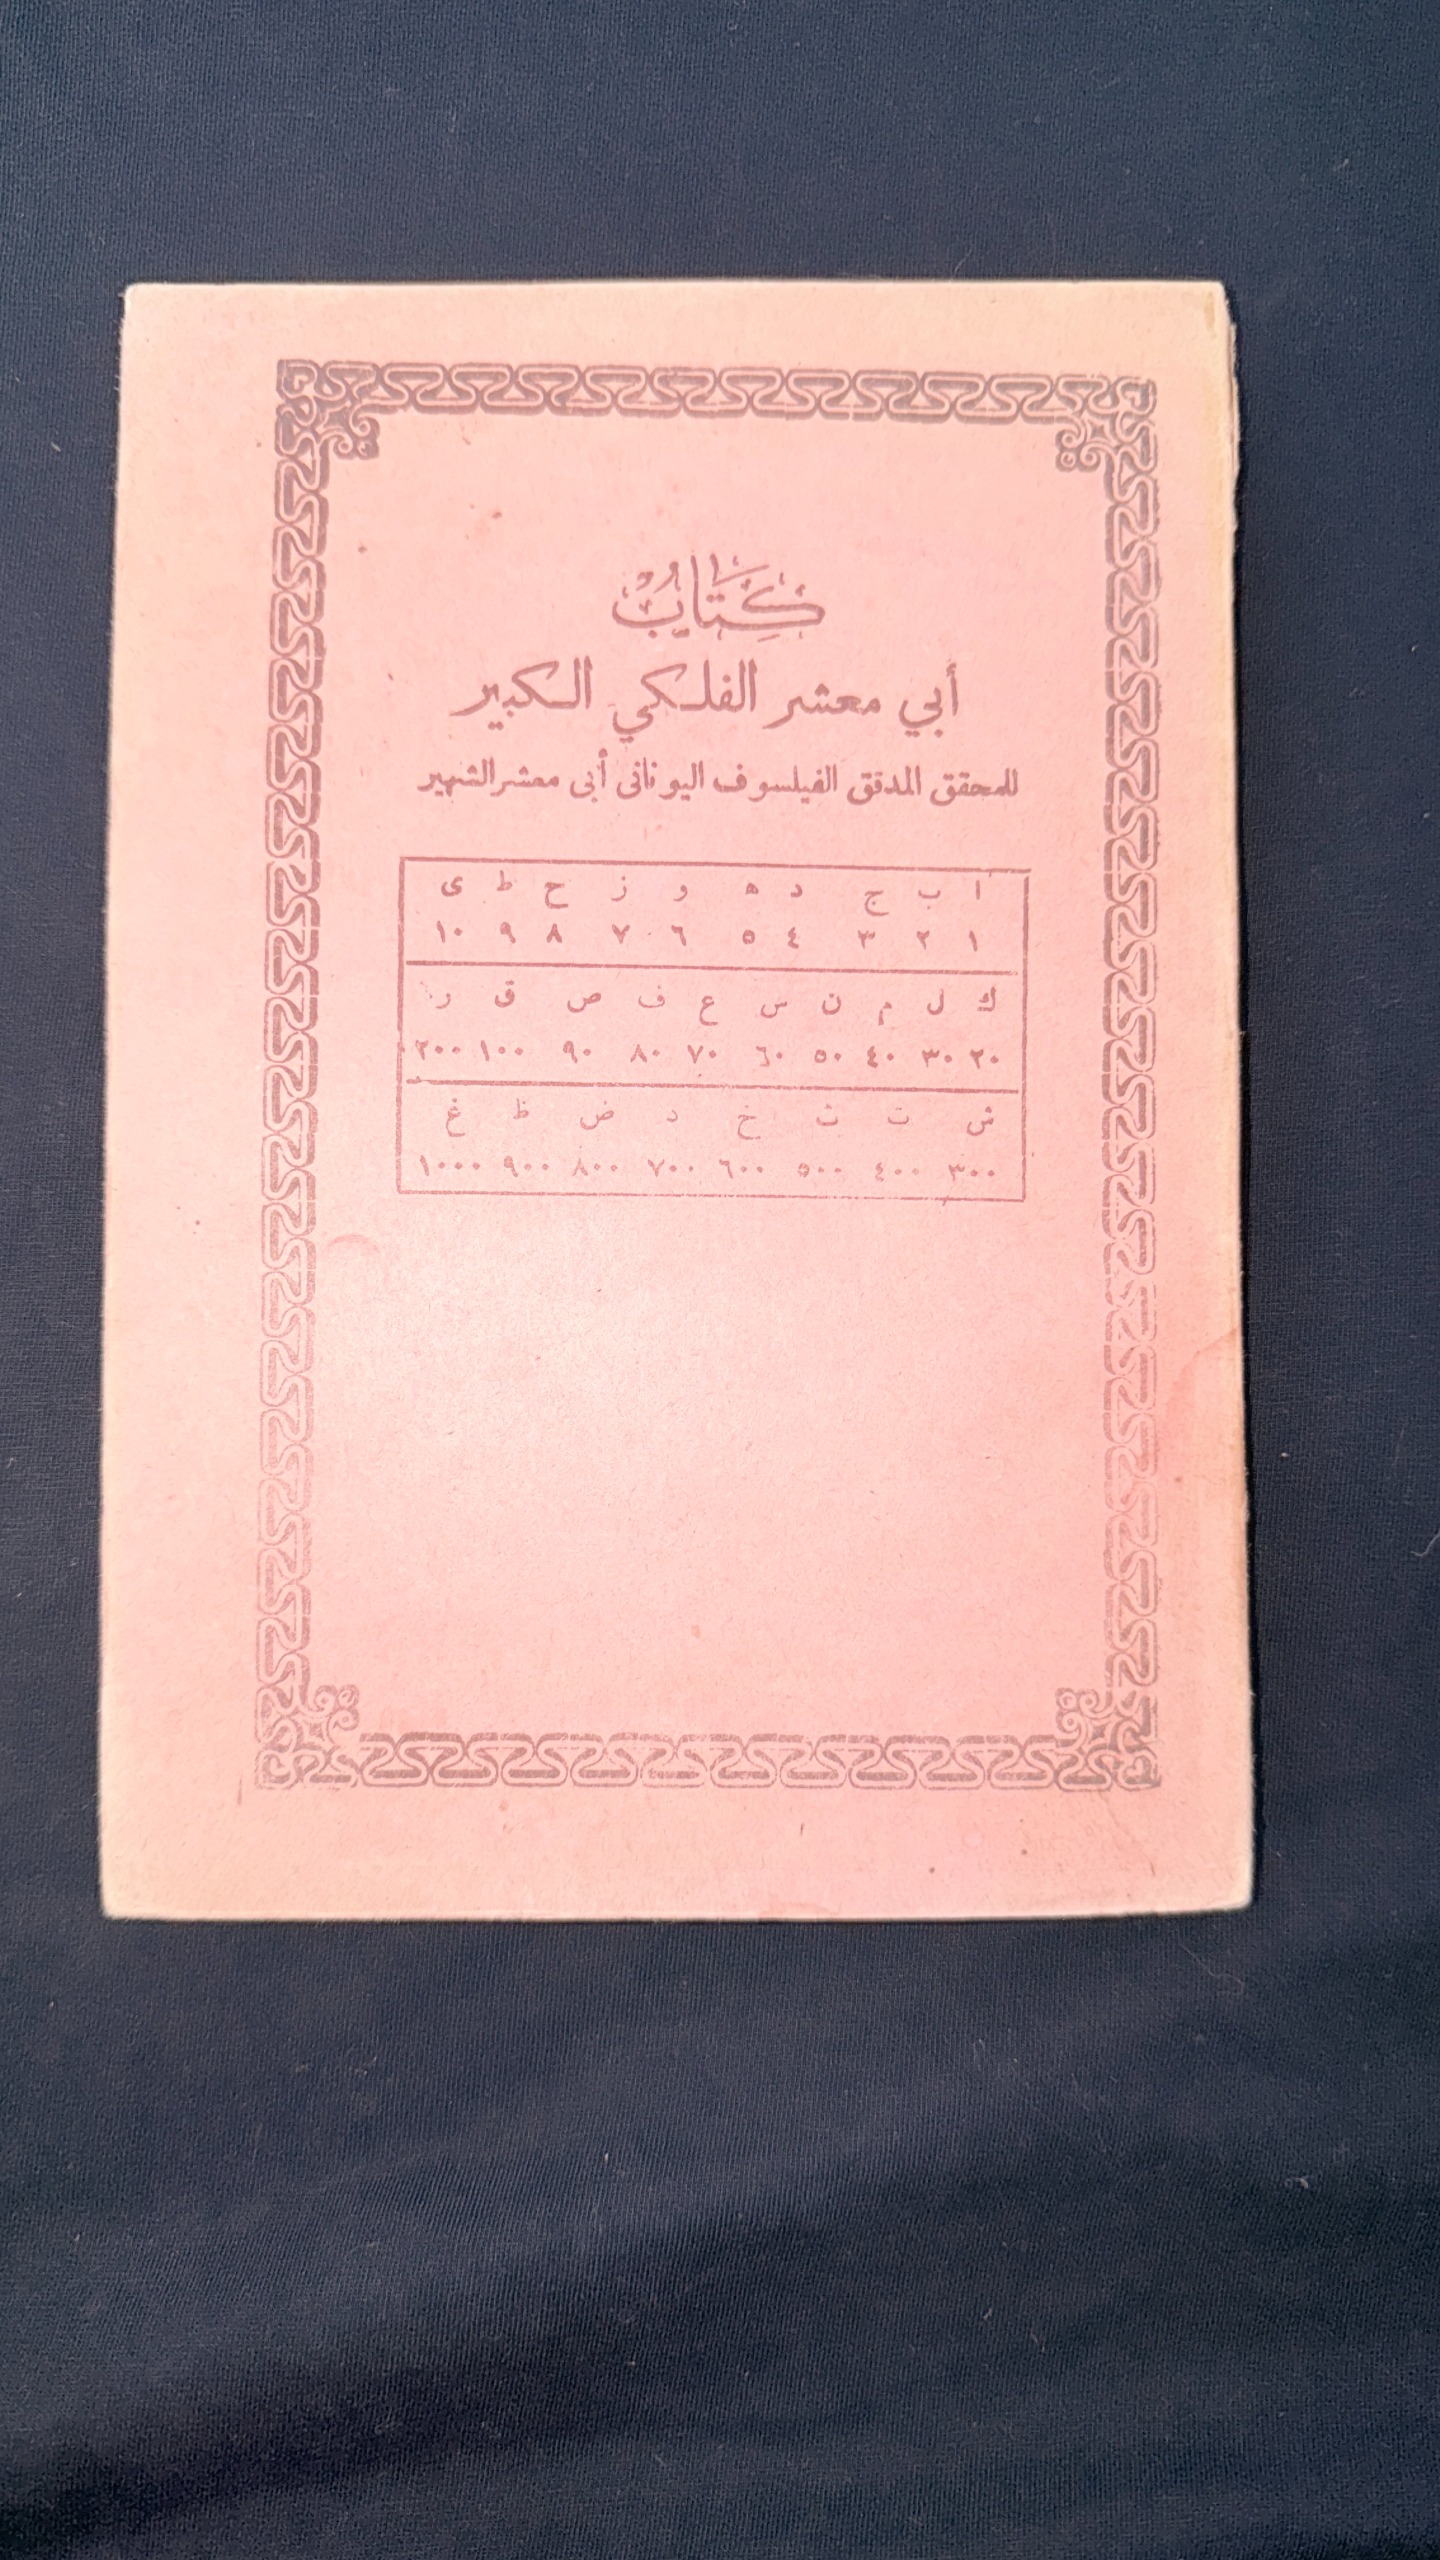 كِتَابُ
أبي معشر الفلكي الكبير
للمحقق المدقق الفيلسوف اليونانى أبى معشر الشهير
ا ب ج د ه و ز ح ط ى
١ ٢ ٣ ٤ ٥ ٦ ٧ ٨ ٩ ١٠
ك ل م ن س ع ف ص ق ر
٢٠ ٣٠ ٤٠ ٥٠ ٦٠ ٧٠ ٨٠ ٩٠ ١٠٠ ٢٠٠
ش ت ث خ د ض ظ غ
٣٠٠ ٤٠٠ ٥٠٠ ٦٠٠ ٧٠٠ ٨٠٠ ٩٠٠ ١٠٠٠